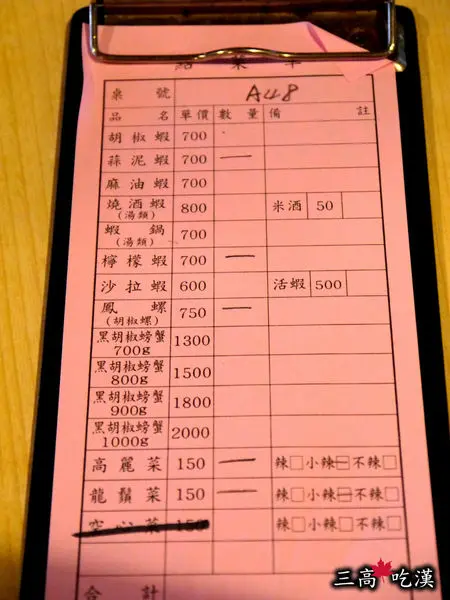 點菜單
桌號 A48
品名 單價 數量 備註
胡椒蝦 700
蒜泥蝦 700 一
麻油蝦 700
燒酒蝦 800 米酒 50
(湯類)
蝦鍋 700
(湯類)
檸檬蝦 700 一
沙拉蝦 600 活蝦 500
鳳螺 750 一
(胡椒螺)
黑胡椒螃蟹 1300
700g
黑胡椒螃蟹 1500
800g
黑胡椒螃蟹 1800
900g
黑胡椒螃蟹 2000
1000g
高麗菜 150 一 辣□小辣□不辣□
龍鬚菜 150 一 辣□小辣□不辣□
空心菜 150 辣□小辣□不辣□
合計
三高吃漢